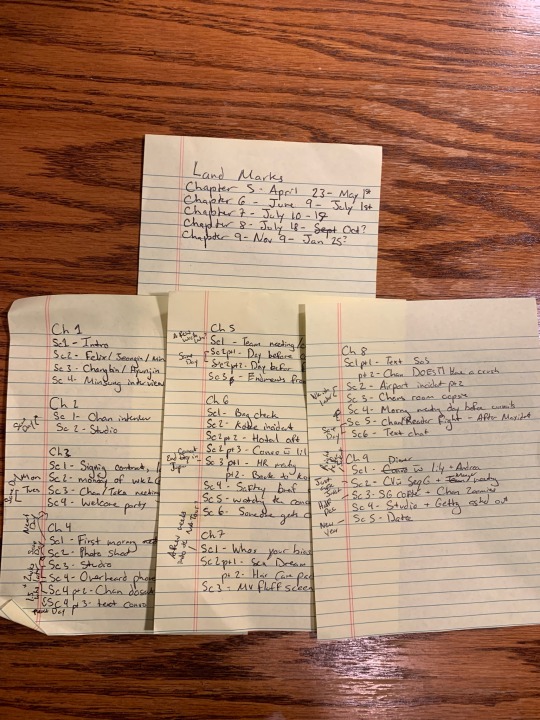 Land Marks
Chapter 5 - April 23 - May 1st
Chapter 6 - June 9 - July 1st
Chapter 7 - July 10 - 15
Chapter 8 - July 18 - Sept Oct?
Chapter 9 - Nov 9 - Jan 25?
Ch 1
Sc1 - Intro
Sc2 - Felix/Jeongin/Min
Sc 3 - Changbin/Hyunjin
Sc 4 - Minsung interview
Ch 2
Sc 1 - Chan interview
Sc 2 - Studio
Ch3
Sc1 - Signing contract,
Mon
Sc2 - monday of wk 2
Tues
Sc3 - Chan/Take meeting
Sc4 - Welcome party
Ch 4
Sc1 - First morning
Sc2 - Photo shoot
Sc3 - Studio
Sc4 - Overheard phone
Sc4 pt2 - Chan
Sc4 pt3 - text convo
Ch 5
Sc1 - Team meeting/
Same Day
Sc2pt1 - Day before
Sc2pt2 - Day before
Sc3 - Endments from
Ch 6
Sc1 - Bag check
Sc2 - Kobe incident
Sc2pt2 - Hotel aft
Sc2 pt3 - Convo w 1:4
Sc3 pt1 - HR meeting
pt2 - Back to Ko
Sc4 - Safety brief
Sc5 - Watching the conc
Sc 6 - Someone gets
Ch7
Sc1 - Whos your bias
Sc2pt1 - Sea Dream
pt 2 - Hair Care
Sc3 - MV fluff
Ch 8
Sc1pt1 - Text SoS
pt 2 - Chan DOESNT have a crush
Sc2 - Airport incident pt2
Sc3 - Chans room oopsie
Sc4 - Morning meeting day before concerts
Same Day
Sc5 - Chan/Reader Fight - After Meeting
Sc6 - Text chat
Ch 9
Dinner
Sc1 - Convo w 1:4 + Andrea
Sc2 - Chan SeqG + party
Sc3 - SG coffee + Chan Zoomies
Sc4 - Studio + Getting asked out
New year
Sc5 - Date